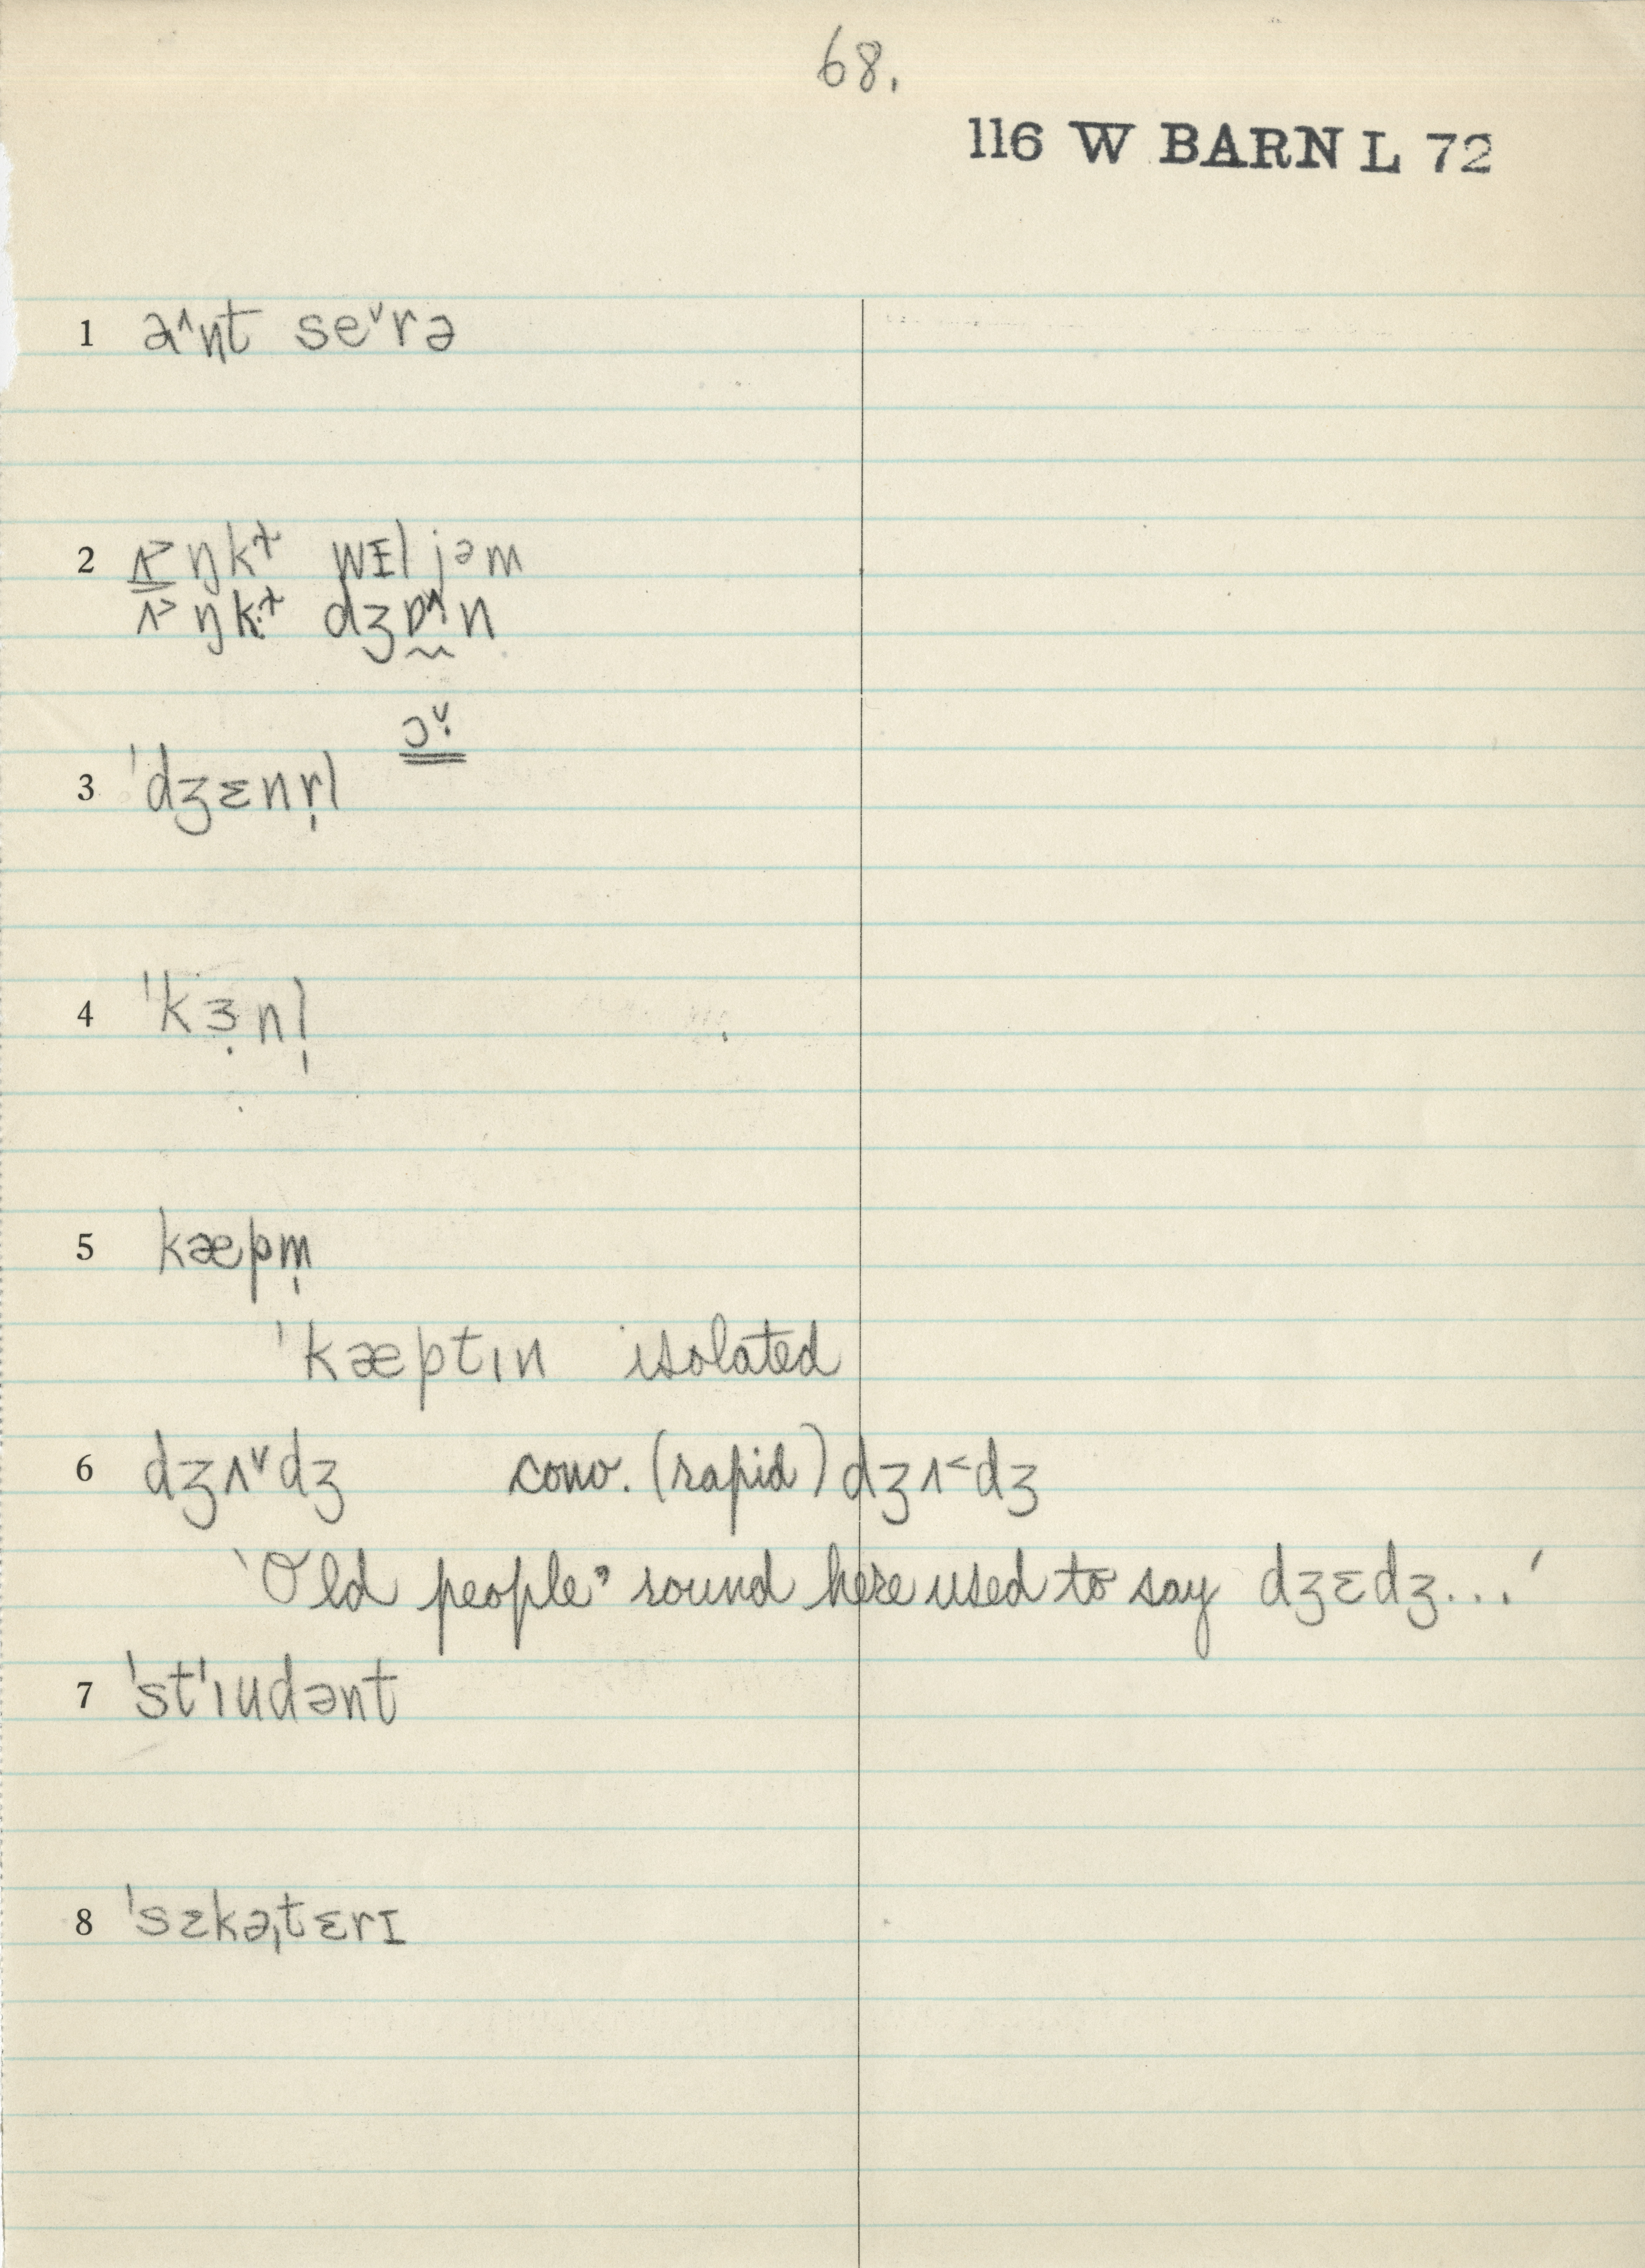 68.
116 W BARN L 72
1 a˄nt se˅rə
2 ʌ˃ŋk⁺ wɪljəm
ʌ˃ŋk⁺ dʒɒ˄n
ɔ˅
3 ˈdʒɛnr̩l
4 ˈkɜ̣nl̩
5 kæpm̩
ˈkæptɪn isolated
6 dʒʌ˅dʒ conv. (rapid) dʒʌ˂dʒ
‘Old people’ round here used to say dʒɛdʒ...’
7 ˈstˈɪudənt
8 ˈsɛkəˌtɛrɪ